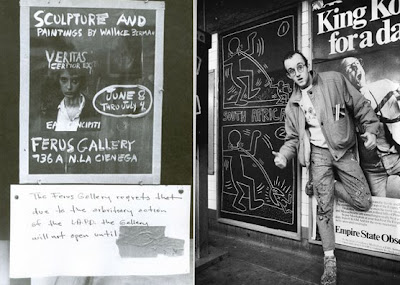 SCULPTURE AND
PAINTINGS BY WALLACE BERMAN
VERITAS
JUNE 8
THRU JULY 4
FERUS GALLERY
736 A N. LA CIENEGA
The Ferus Gallery regrets that
due to the arbitrary action
of the L.A.P.D. the Gallery
will not open until
SOUTH AFRICA
King Ko
for a da
Empire State Obse